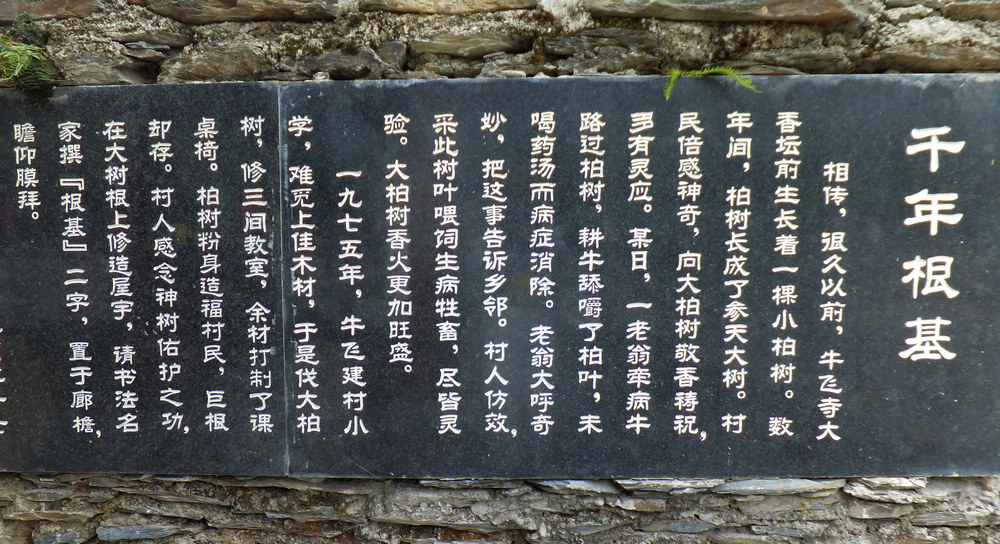 千年根基
相传，很久以前，牛飞寺大
香坛前生长着一棵小柏树。数
年间，柏树长成了参天大树。村
民倍感神奇，向大柏树敬香祷祝，
多有灵应。某日，一老翁牵病牛
路过柏树，耕牛舔嚼了柏叶，未
喝药汤而病症消除。老翁大呼奇
妙，把这事告诉乡邻。村人仿效，
采此树叶喂饲生病牲畜，尽皆灵
验。大柏树香火更加旺盛。
一九七五年，牛飞建村小
学，难觅上佳木材，于是伐大柏
树，修三间教室，余材打制了课
桌椅。柏树粉身造福村民，巨根
却存。村人感念神树佑护之功，
在大树根上修造屋宇，请书法名
家撰『根基』二字，置于廊檐，
瞻仰膜拜。